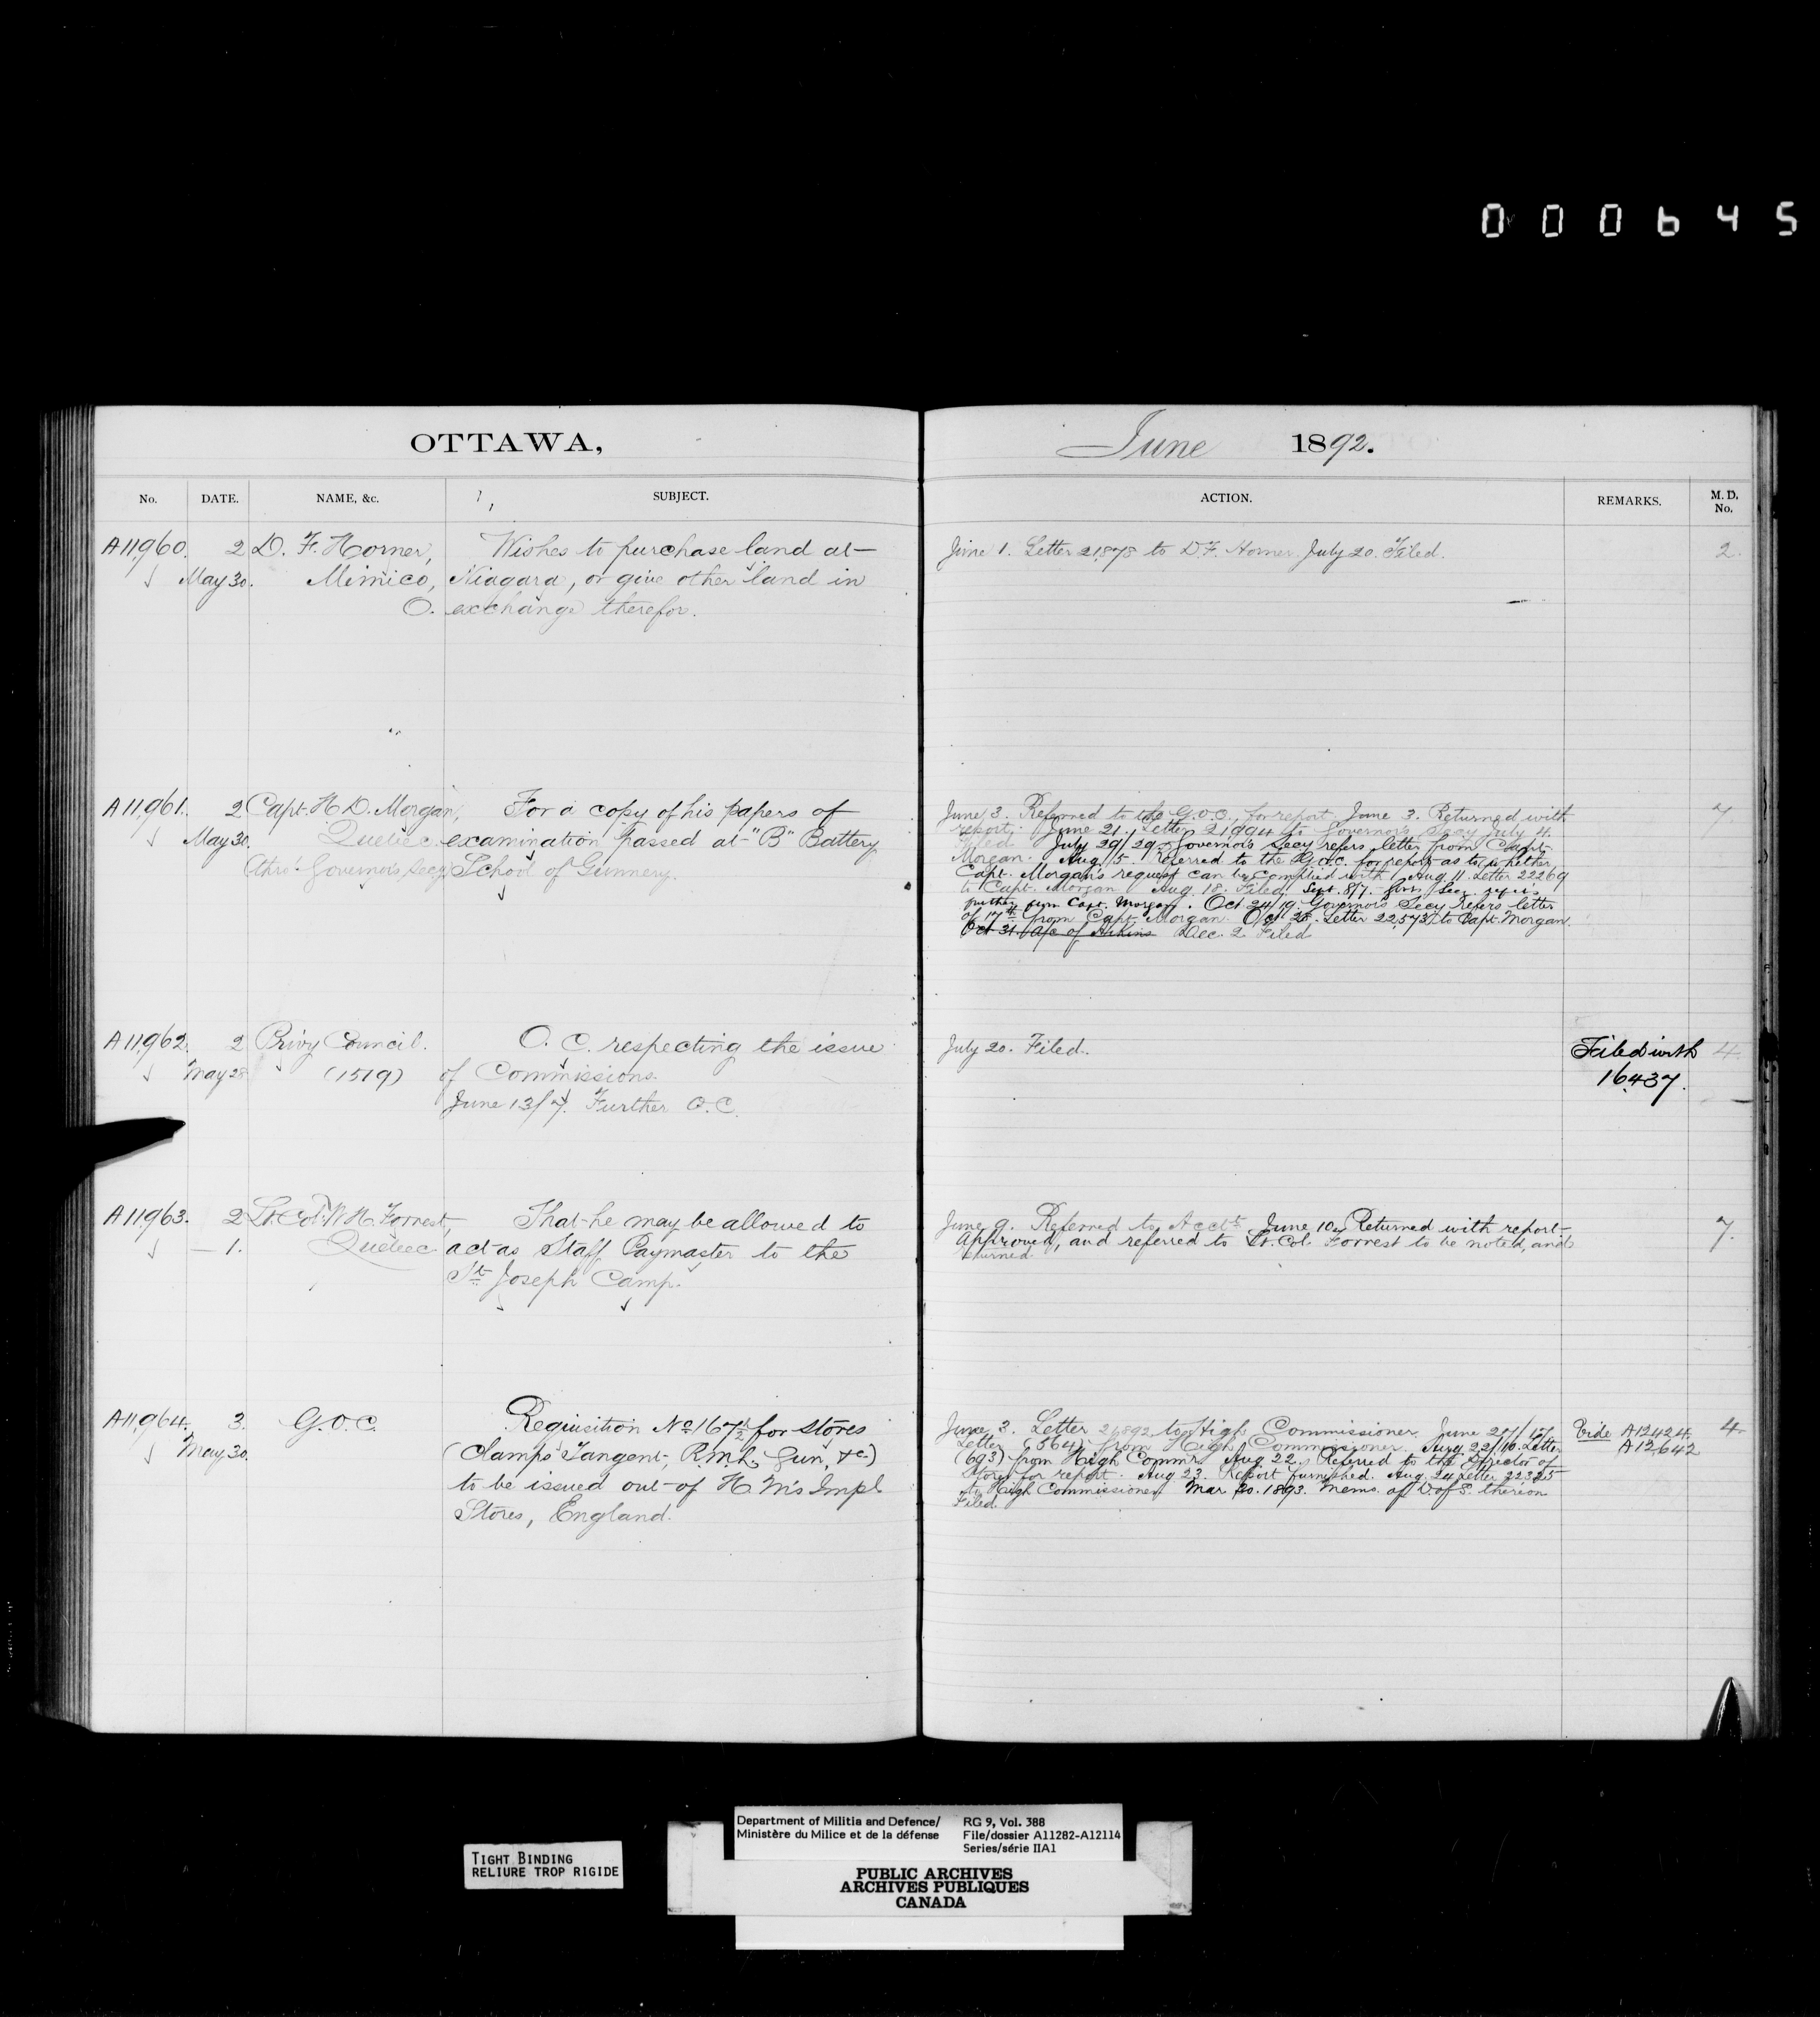 000645
OTTAWA,
June 1892.
No. DATE. NAME, &c. SUBJECT. ACTION. REMARKS. M. D. No.
A11,960. 2 D. F. Horner, Wishes to purchase land at
May 30. Mimico, Niagara, or give other land in
O. exchange therefor.
June 1. Letter 21,878 to D.F. Horner. July 20. Filed. 2.
A11,961. 2 Capt. H. D. Morgan, For a copy of his papers of
May 30. Quebec. examination passed at "B" Battery
(thro' Governor's Secy) School of Gunnery.
June 3. Referred to the G.O.C., for report. June 3. Returned with 7.
report. June 21. Letter 21994 to Governor's Secy July 4.
Filed. July 29/29. Governor's Secy refers letter from Capt.
Morgan. Aug. 5. Referred to the G.O.C. for report as to whether
Capt. Morgan's request can be complied with. Aug. 11. Letter 22269
to Capt. Morgan Aug. 18. Filed. Sept. 8/7. Govr's Secr. refers
further from Capt. Morgan. Oct 24/19. Governor's Secy Refers letter
of 17th from Capt. Morgan. Oct 25. Letter 22,573 to Capt. Morgan.
Oct 31. A/c of Aikins Dec. 2. Filed
A11,962. 2 Privy Council. O. C. respecting the issue
May 28 (1519) of Commissions.
June 13/7. Further O.C.
July 20. Filed. Filed with 4.
16437.
A11,963. 2 Lt. Col. W. H. Forrest, That he may be allowed to
— 1. Quebec act as Staff Paymaster to the
St. Joseph Camp.
June 9. Referred to Acctt. June 10. Returned with report 7.
Approved, and referred to Lt. Col. Forrest to be noted, and
returned.
A11,964. 3. G.O.C. Requisition No 167½ for stores
May 30. (Clamps Tangent, R.M.L. Gun, &c.)
to be issued out of H.M's Impl
Stores, England.
June 3. Letter 21,892 to High Commissioner. June 27/17 Vide A12424. 4.
Letter (564) from High Commissioner. Aug. 22/10. Letter A12,642
(693) from High Commr. Aug 22. Referred to the Director of
Stores for report. Aug 23. Report furnished. Aug. 24 Letter 22325
to High Commissioner Mar. 20. 1893. Memo. of D of S. thereon
Filed.
TIGHT BINDING
RELIURE TROP RIGIDE
Department of Militia and Defence/ RG 9, Vol. 388
Ministère du Milice et de la défense File/dossier A11282-A12114
Series/série IIA1
PUBLIC ARCHIVES
ARCHIVES PUBLIQUES
CANADA